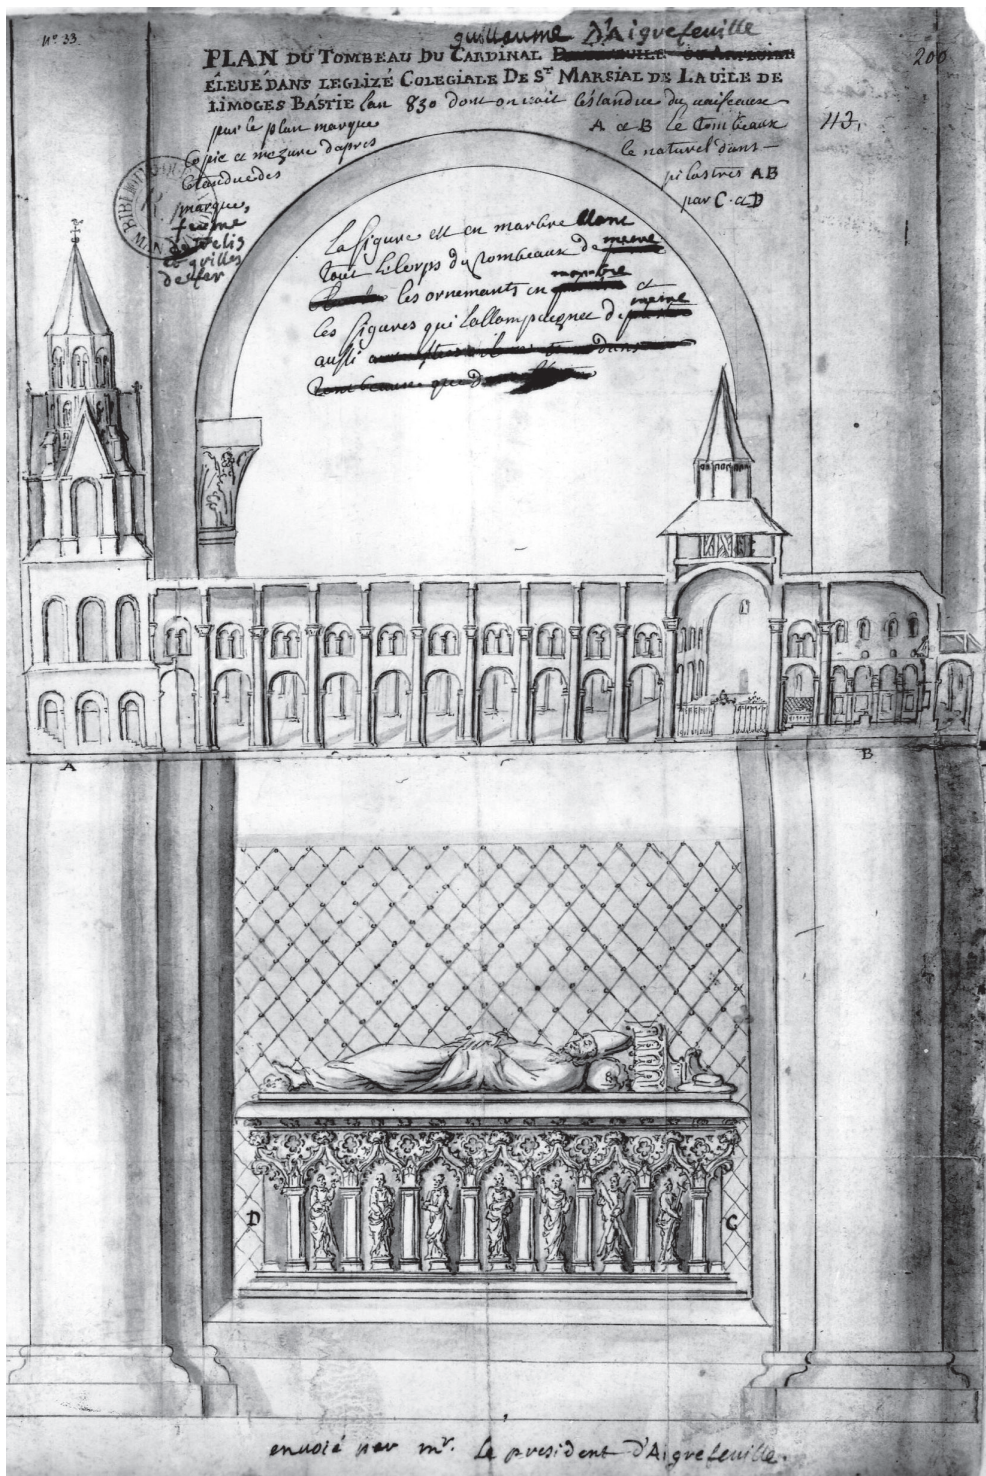 nº 33.
guillaume d'Aigrefeuille
200
PLAN DU TOMBEAU DU CARDINAL
ÉLEUÉ DANS LEGLIZÉ COLEGIALE DE Sᵀ MARSIAL DE LAUILE DE
LIMOGES BASTIE lan 830 dont on voit léstandue du vaisseaux
par le plan marque A et B Le tombeaux
113.
copie et mezure dapres le naturel dans
létandue des pilastres AB
marque, par C et D
ferme
et grilles
de fer
La figure est en marbre blanc
tout le corps du tombeaux de marbre
les ornements en marbre et
les figures qui lassompagnet de marbre
aussi
A
B
D
C
envoié par mr. Le president d'Aigrefeuille.